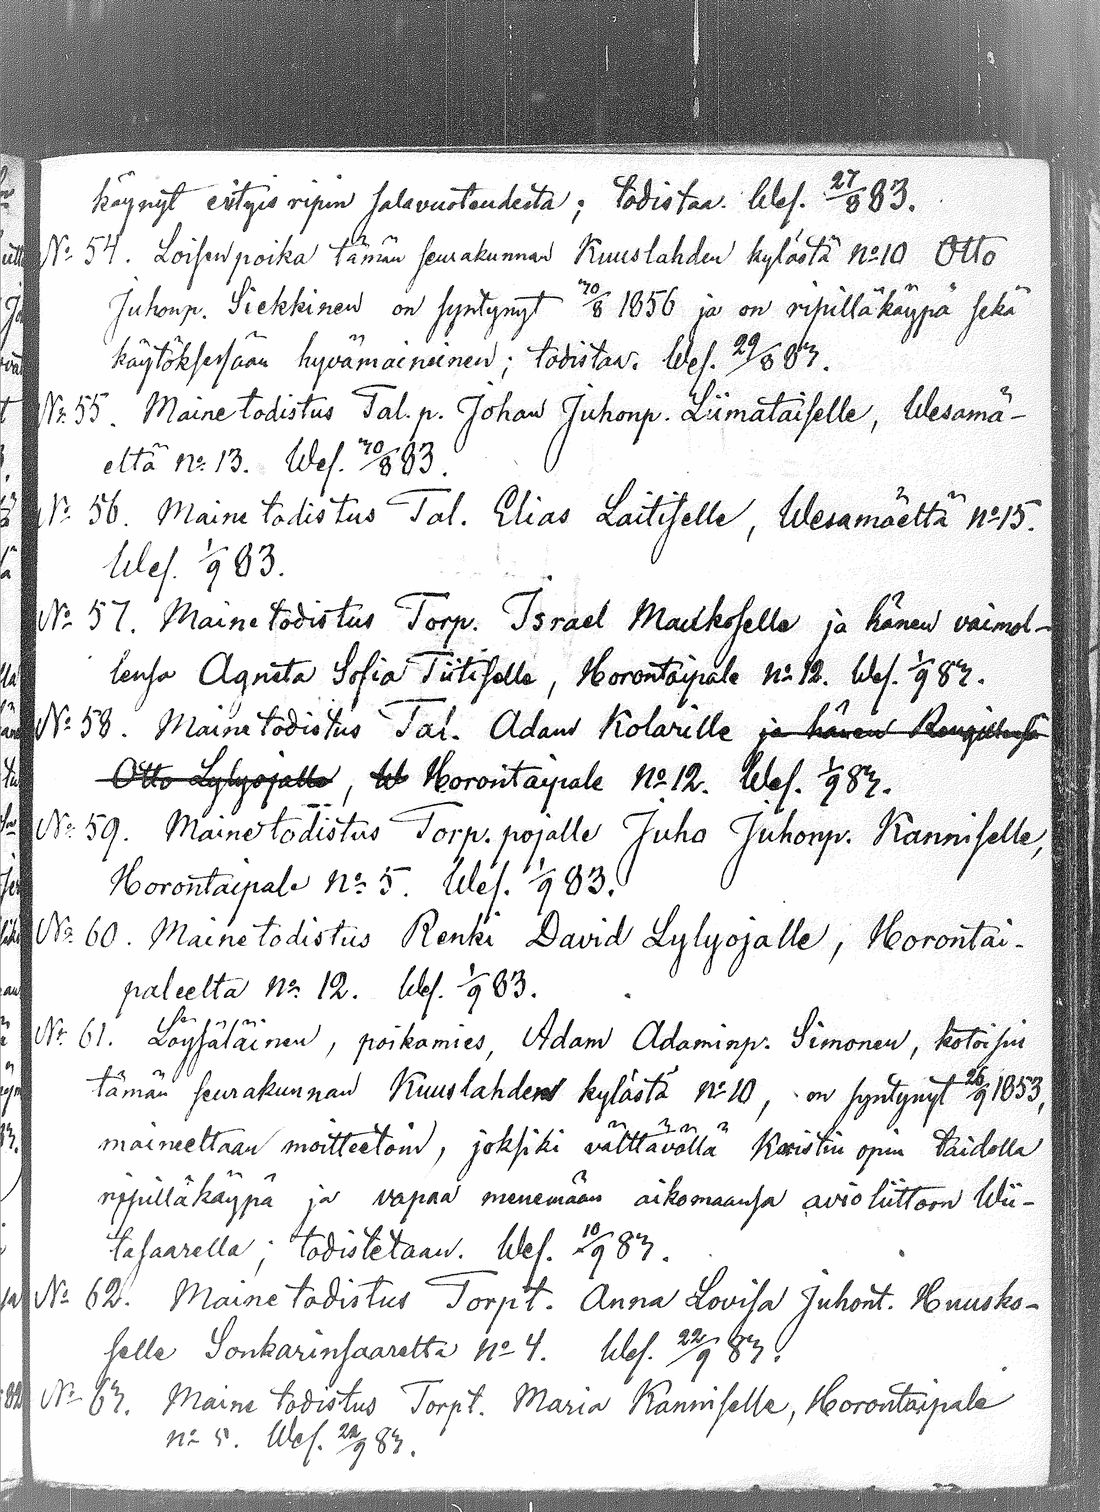 käynyt erityis ripin salavuoteudesta; todistaa. Wes. 27/8 83.
No 54. Loisen poika tämän seurakunnan Kuuslahden kylästä no 10 Otto
Juhonp. Siekkinen on syntynyt 30/8 1856 ja on ripilläkäypä sekä
käytöksessään hyvämaineinen; todistav. Wes. 29/8 83.
No 55. Maine todistus Tal. p. Johan Juhonp. Liimataiselle, Wesamä-
eltä no 13. Wes. 30/8 83.
No 56. Maine todistus Tal. Elias Laitiselle, Wesamäeltä no 15.
Wes. 1/9 83.
No 57. Maine todistus Torp. Israel Maukoselle ja hänen vaimol-
lensa Agneta Sofia Tiitiselle, Horontaipale no 12. Wes. 1/9 83.
No 58. Maine todistus Tal. Adam Kolarille ja hänen Rengillensä
Otto Lylyojalle, W Horontaipale no 12. Wes. 1/9 83.
No 59. Maine todistus Torp. pojalle Juho Juhonp. Kanniselle,
Horontaipale no 5. Wes. 1/9 83.
No 60. Maine todistus Renki David Lylyojalle, Horontai-
paleelta no 12. Wes. 1/9 83.
No 61. Löysäläinen, poikamies, Adam Adaminp. Simonen, kotoisin
tämän seurakunnan Kuuslahden kylästä no 10, on syntynyt 26/9 1853,
maineeltaan moitteetoin, joksiki välttävällä Kristin opin taidolla
ripilläkäypä ja vapaa menemään aikomaansa avioliittoon Wii-
tasaarella; todistetaan. Wes. 10/9 83.
No 62. Maine todistus Torpt. Anna Lovisa Juhont. Huusko-
selle Sonkarinsaarelta no 4. Wes. 22/9 83.
No 63. Maine todistus Torpt. Maria Kanniselle, Horontaipale
no 5. Wes. 22/9 83.